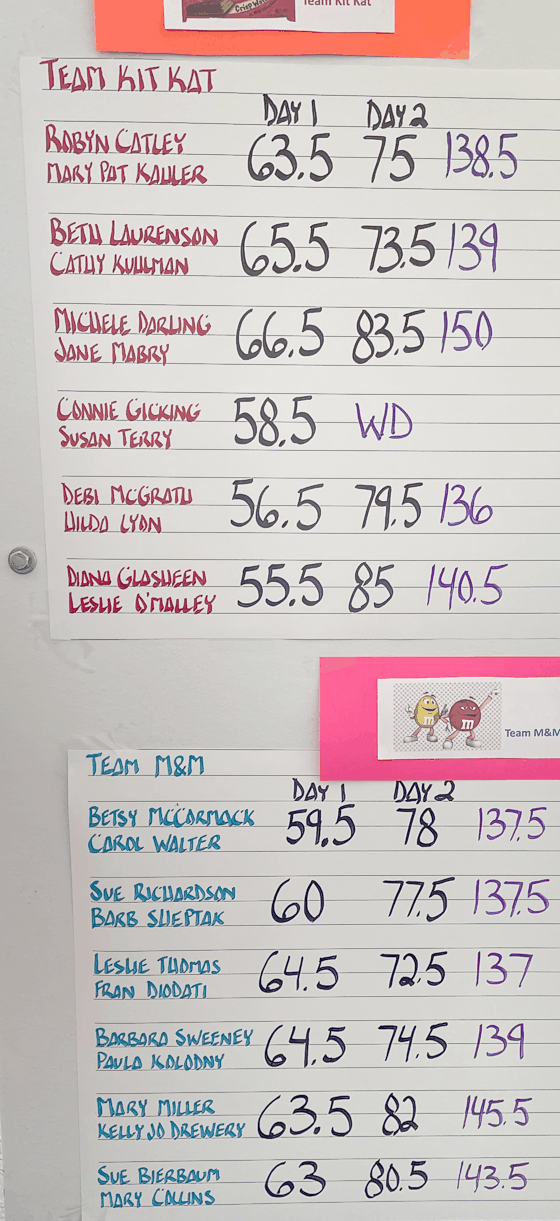 Crisp Wa
Team Kit Kat
TEAM KIT KAT
DAY 1 DAY 2
ROBYN CATLEY
MARY PAT KAULER
63.5 75 138.5
BETH LAURENSON
CATHY KULLMAN
65.5 73.5 139
MICHELE DARLING
JANE MABRY
66.5 83.5 150
CONNIE GICKING
SUSAN TERRY
58.5 WD
DEBI MCGRATH
HILDA LYON
56.5 79.5 136
DIANA GLASHEEN
LESLIE O'MALLEY
55.5 85 140.5
m m
Team M&M
TEAM M&M
DAY 1 DAY 2
BETSY MCCORMACK
CAROL WALTER
59.5 78 137.5
SUE RICHARDSON
BARB SHEPTAK
60 77.5 137.5
LESLIE THOMAS
FRAN DIODATI
64.5 72.5 137
BARBARA SWEENEY
PAULA KOLODNY
64.5 74.5 139
MARY MILLER
KELLY JO DREWERY
63.5 82 145.5
SUE BIERBAUM
MARY COLLINS
63 80.5 143.5